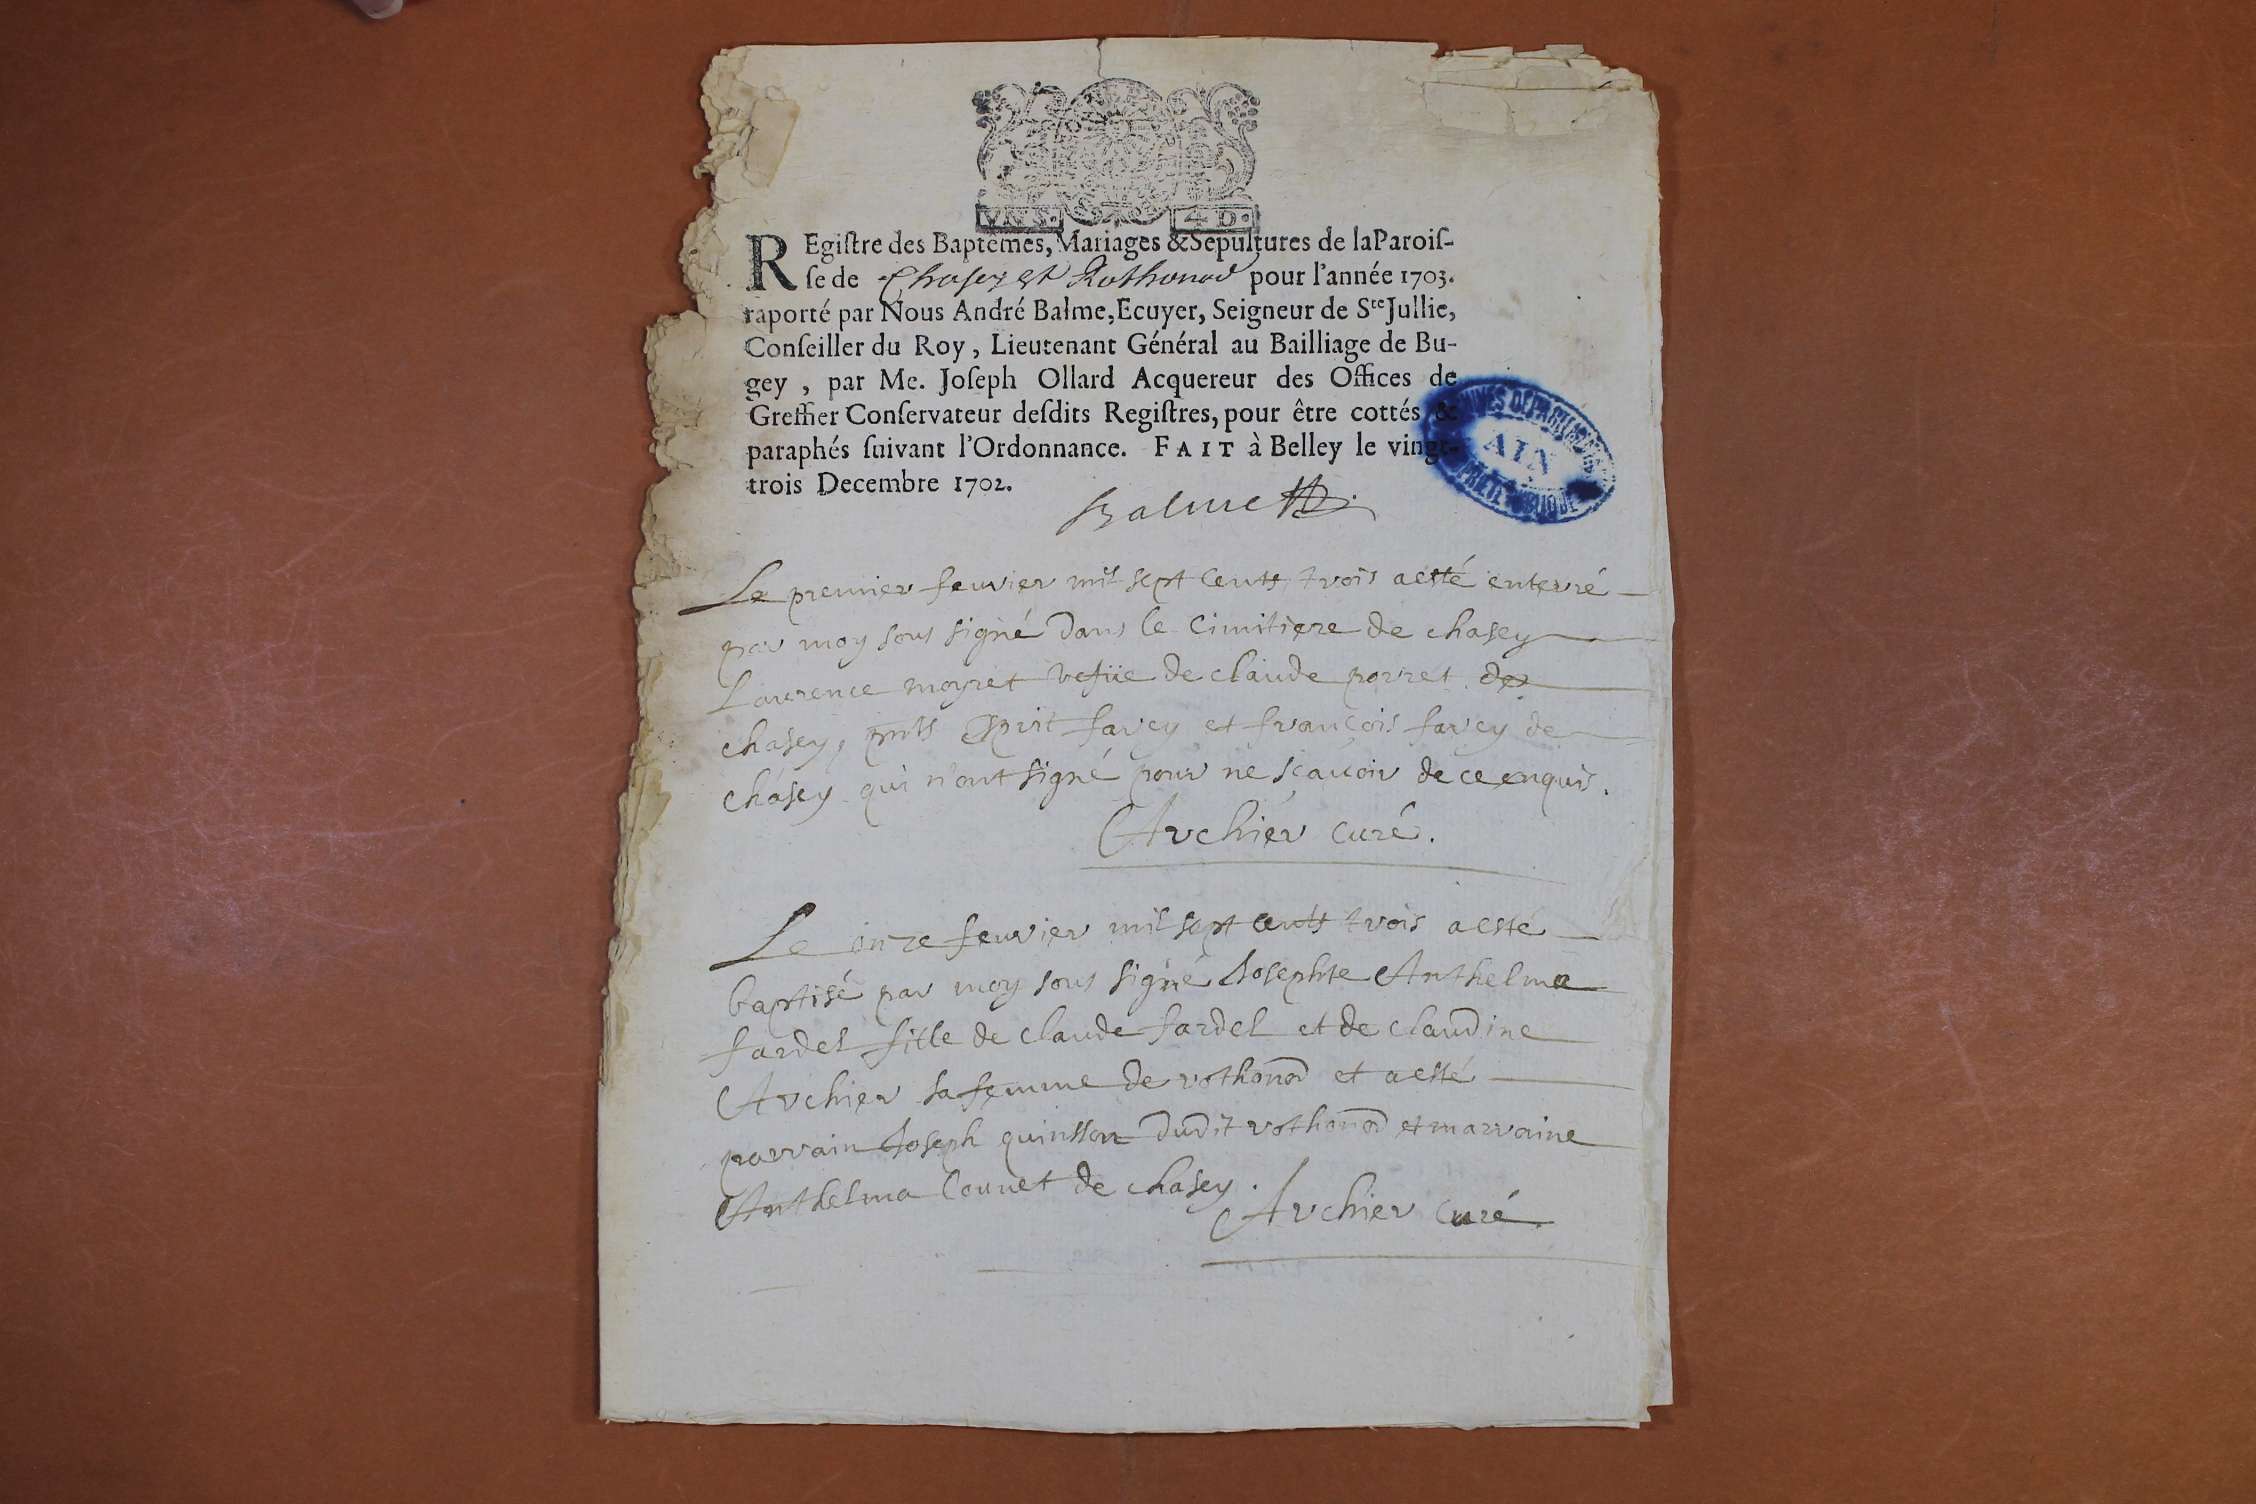 VN S. 4 D.
REgiſtre des Baptêmes, Mariages & Sepultures de la Paroiſ-
ſe de Chasey et Rothonod pour l'année 1703.
raporté par Nous André Balme, Ecuyer, Seigneur de Ste Jullie,
Conſeiller du Roy, Lieutenant Général au Bailliage de Bu-
gey, par Me. Joſeph Ollard Acquereur des Offices de
Greffier Conſervateur deſdits Regiſtres, pour être cottés &
paraphés ſuivant l'Ordonnance. FAIT à Belley le vingt-
trois Decembre 1702.
Balme
ARCHIVES DEPARTEMENTALES
AIN
PROPRIETE PUBLIQUE
Le premier feuvier mil sept cents trois a esté enterré
par moy sous signé dans le cimitiere de chasey
Laurence moyret vefüe de claude porret de
chasey, pnts Esprit favey et françois favey de
chasey qui n'ont signé pour ne scavoir de ce enquis.
Archier curé.
Le onze feuvier mil sept cents trois a esté
baptisé par moy sous signé Josephte Anthelma
fardel fille de claude fardel et de claudine
Archier sa femme de rothonod et a esté
parrain Joseph quinsson dudit rothonod et marraine
Anthelma Counet de chasey.
Archier curé